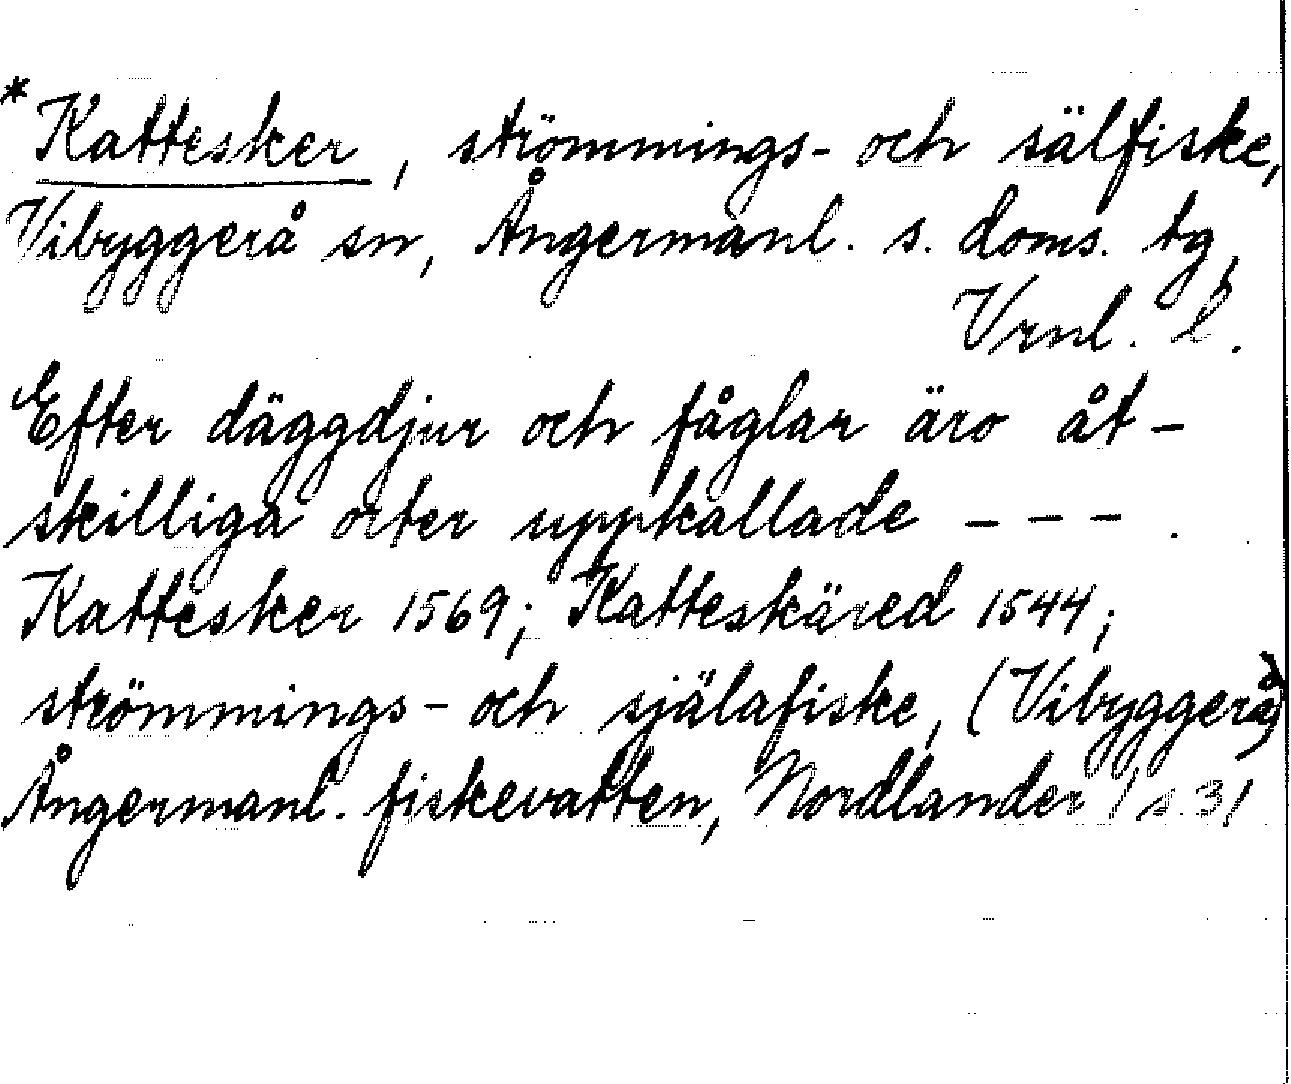 *Kattesker, strömmings- och sälfiske,
Vibyggerå sn, Ångermanl. s. doms. tg,
Vrnl. l.
Efter däggdjur och fåglar äro åt-
skilliga orter uppkallade - - - .
Kattesker 1569; Katteskäred 1544;
strömmings- och själafiske, (Vibyggerå)
Ångermanl. fiskevatten, Nordlander / s. 31